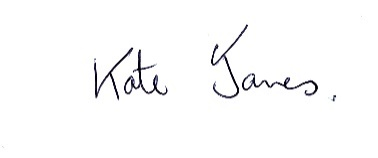 Kate James.